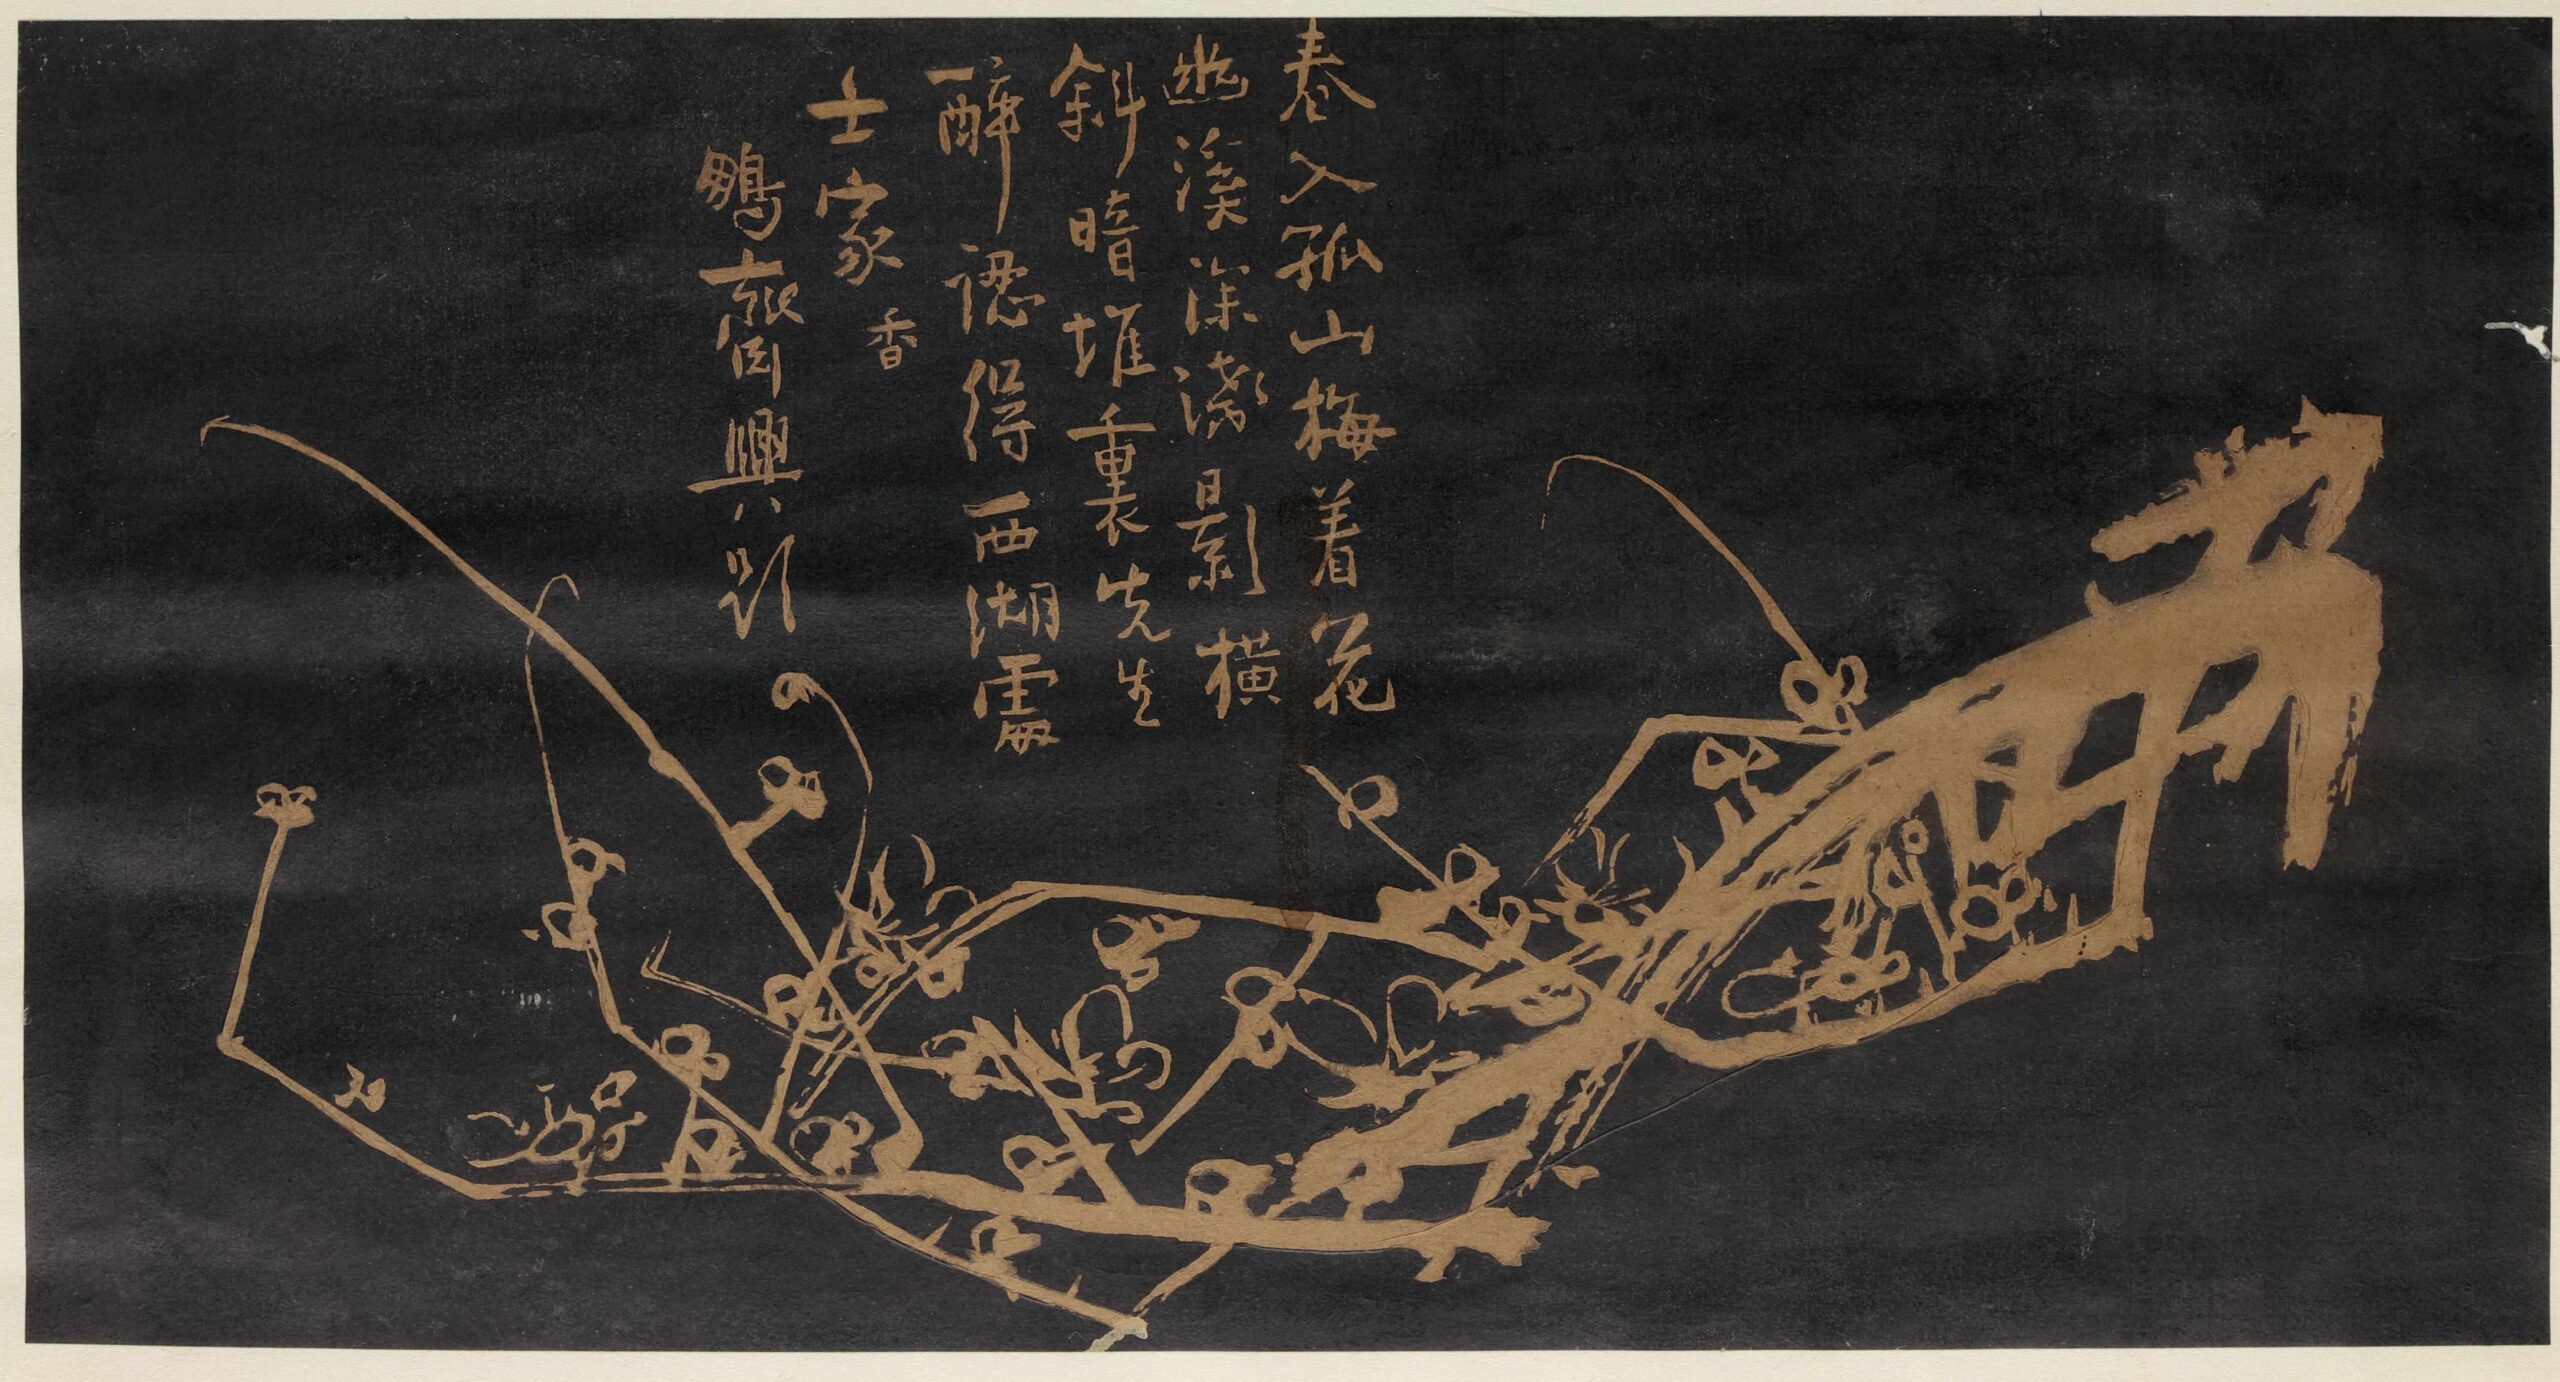 春入孤山梅着花
幽溪深淺影橫
斜暗堆裏先生
醉認得西湖處
士家 香
鵬齋興題